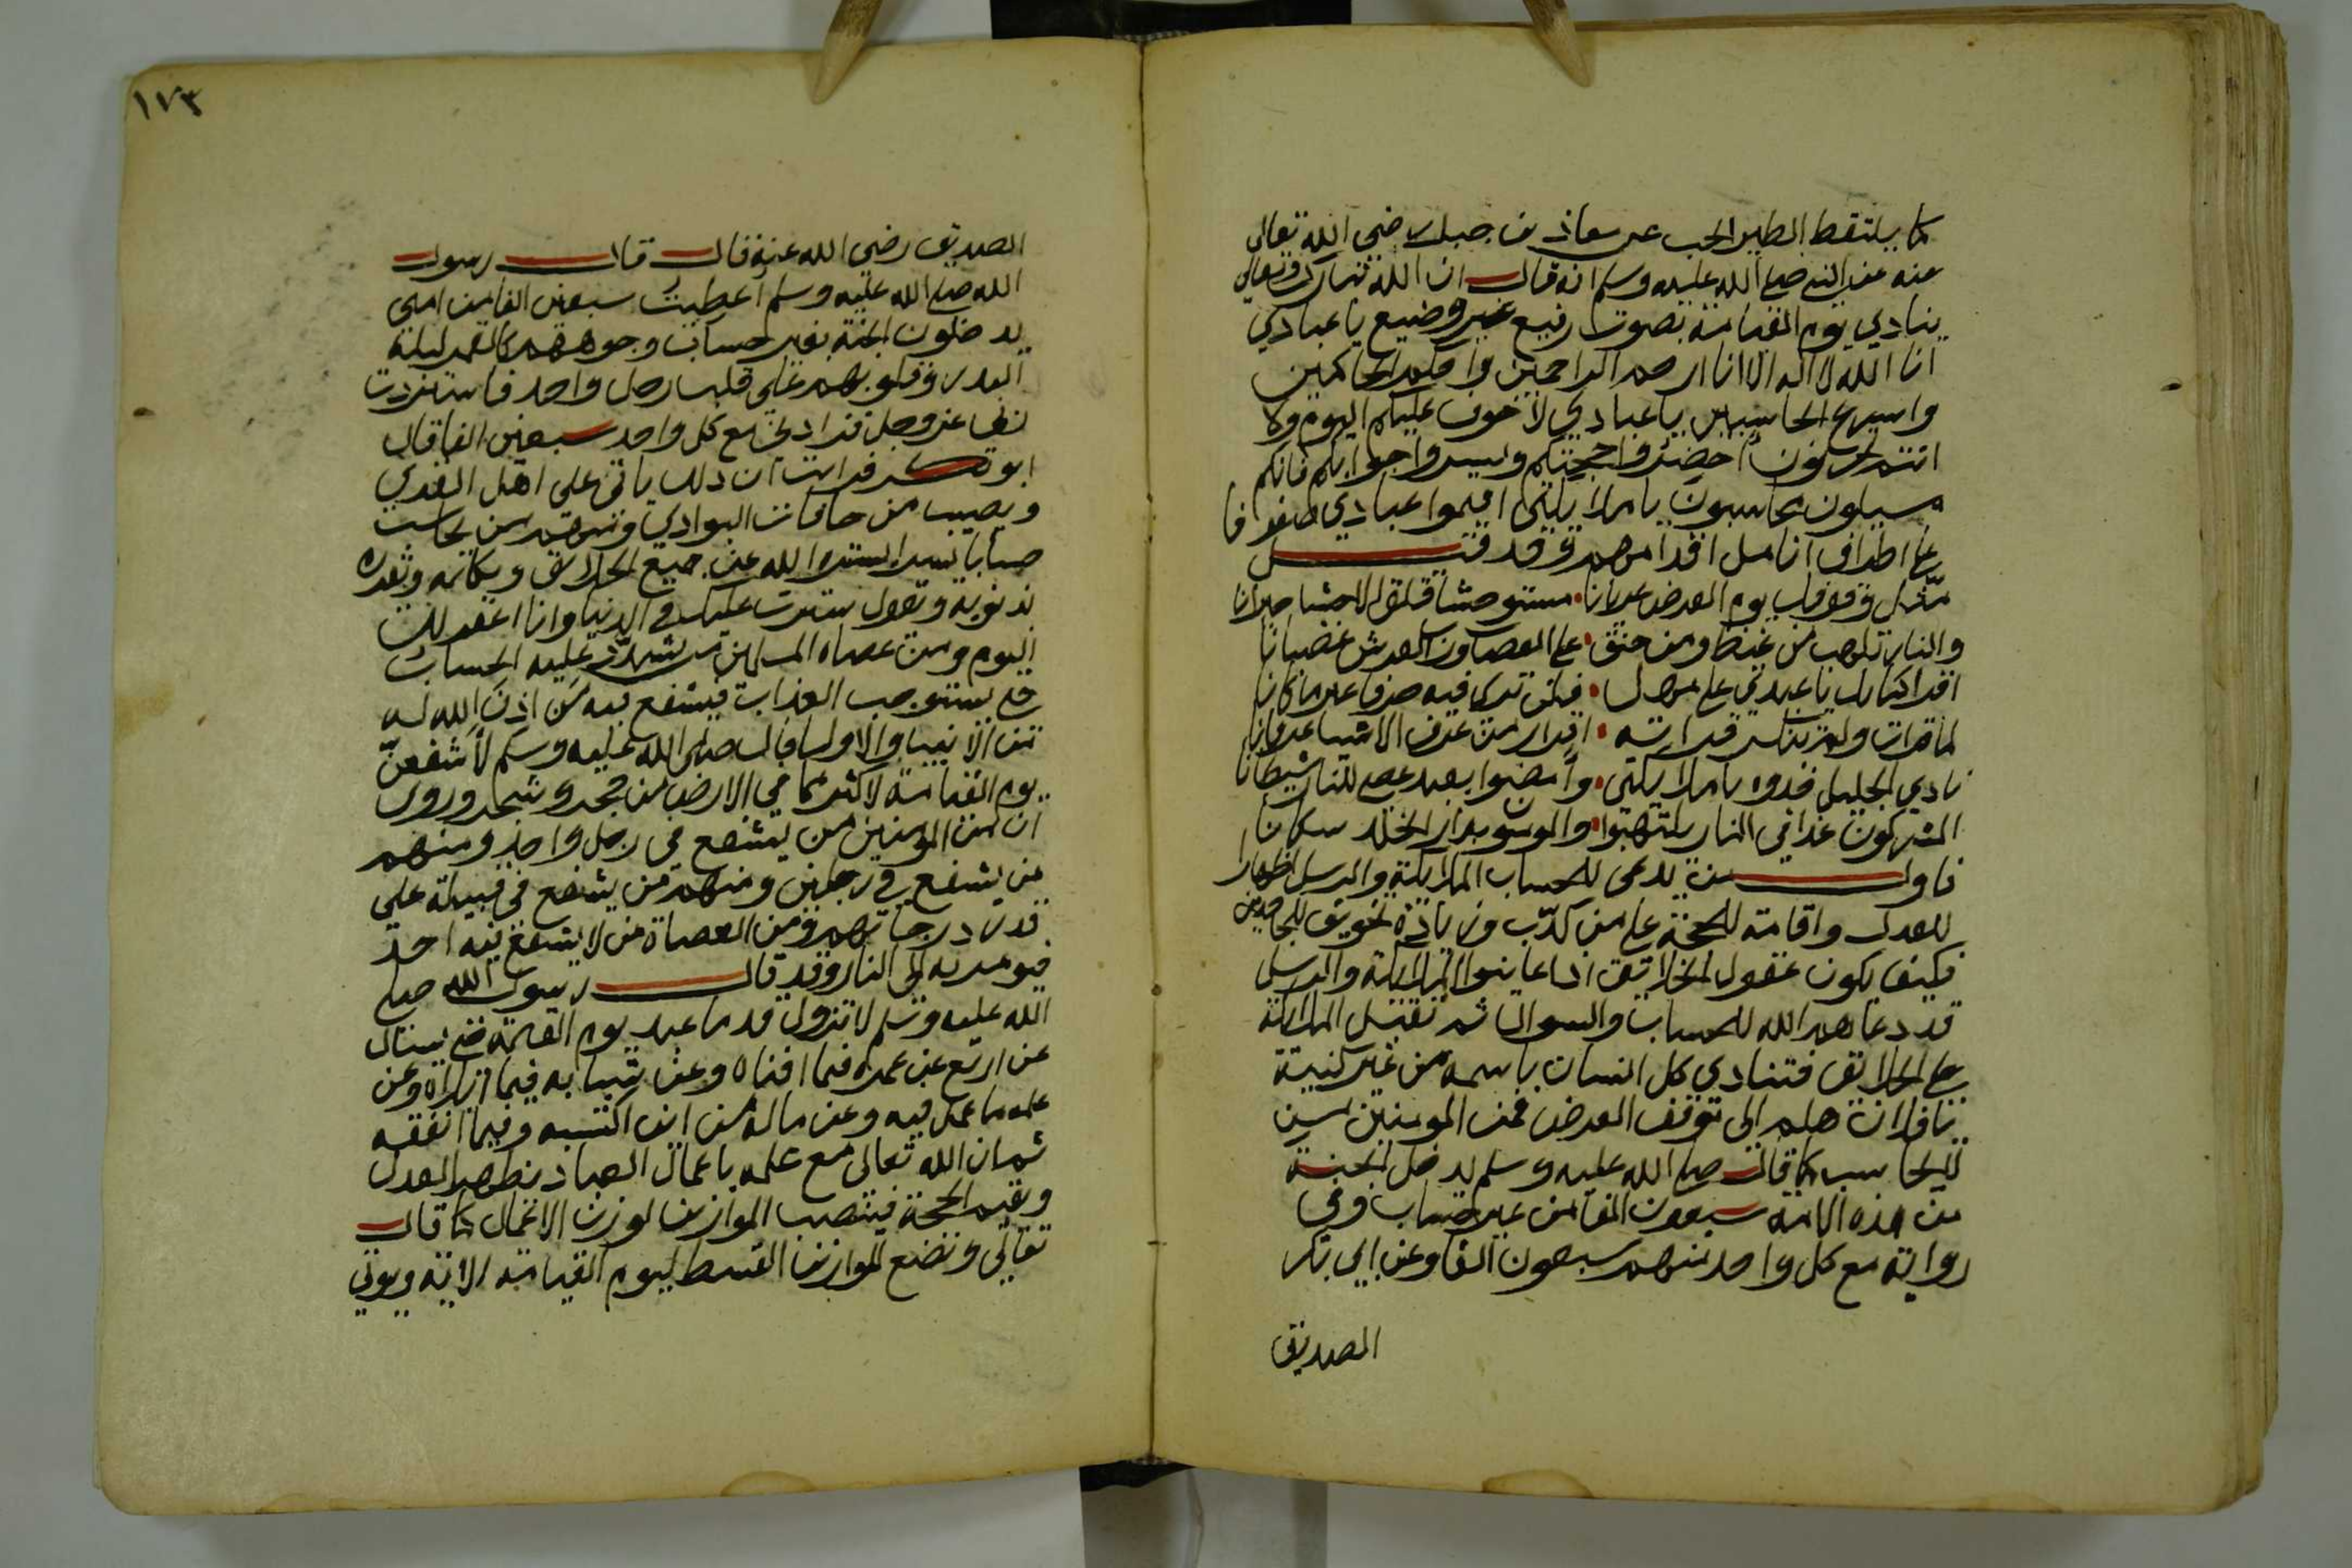 كما يلتقط الطير الحب عن معاذ بن جبل رضي الله تعالى
عنه عن النبي صلى الله عليه وسلم انه قال ان الله تبارك وتعالى
ينادي يوم القيامة بصوت رفيع غير وضيع يا عبادي
انا الله لا اله الا انا ارحم الراحمين واحكم الحاكمين
واسرع الحاسبين يا عبادي لا خوف عليكم اليوم ولا
انتم تحزنون احضروا حجتكم ويسروا جوابكم فانكم
مسيلون محاسبون يا ملايكتي اقيموا عبادي صفوفا
على اطراف انامل اقدامهم وقد قيل
مثل وقوفك يوم العرض عريانا مستوحشا قلق الاحشا حيرانا
والنار تلهب من غيظ ومن حنق على العصاة ورب العرش غضبانا
اقرا كتابك يا عبدي على مهل فهل ترى فيه حرفا غير ما كانا
لما قرات ولم تنكر قراته اقرار من عرف الاشيا عرفانا
نادي الجليل خذوه يا ملايكتي وامضوا بعبد عصى للنار شيطانا
المشركون غدا في النار يلتهبوا والمومنون بدار الخلد سكانا
فاول من يدعى للحساب الملايكة والرسل اظهارا
للعدل واقامة للحجة على من كذب وزيادة تخويف للجاحدين
فكيف يكون عقول الخلايق اذا عاينوا الملايكة والرسل
قد دعاهم الله للحساب والسوال ثم تقبل الملايكة
على الخلايق فتنادي كل انسان باسمه من غير كنيته
يا فلان هلم الى موقف العرض فمن المومنين من
لا يحاسب كما قال صلى الله عليه وسلم يدخل الجنة
من هذه الامة سبعون الفا من غير حساب وفي
رواية مع كل واحد منهم سبعون الفا وعن ابي بكر
الصديق
١٧٣
الصديق رضي الله عنه قال قال رسول
الله صلى الله عليه وسلم اعطيت سبعين الفا من امتي
يدخلون الجنة بغير حساب وجوههم كالقمر ليلة
البدر وقلوبهم على قلب رجل واحد فاستزدت
ربي عز وجل فزادني مع كل واحد سبعين الفا قال
ابو بكر فرايت ان ذلك ياتي على اهل القرى
ويصيب من حافات البوادي ومنهم من يحاسب
حسابا يسيرا يستره الله عن جميع الخلايق ويكلمه ويقرره
بذنوبه ويقول سترت عليك في الدنيا وانا اغفر لك
اليوم ومن عصاه المسلمين من يشدد عليه الحساب
حتى يستوجب العذاب فيشفع فيه من اذن الله له
من الانبيا والاوليا قال صلى الله عليه وسلم لاشفعن
يوم القيامة لاكثر مما في الارض من حجر وشجر وروى
ان من المومنين من يشفع في رجل واحد ومنهم
من يشفع في رجلين ومنهم من يشفع في قبيلة على
قدر درجاتهم ومن العصاة من لا يشفع فيه احد
فيومر به الى النار وقد قال رسول الله صلى
الله عليه وسلم لا تزول قدما عبد يوم القيمة حتى يسال
عن اربع عن عمره فيما افناه وعن شبابه فيما ابلاه وعن
علمه ما عمل فيه وعن ماله من اين اكتسبه وفيما انفقه
ثم ان الله تعالى مع علمه باعمال العباد يظهر العدل
ويقيم الحجة فينصب الموازين لوزن الاعمال كما قال
تعالى ونضع الموازين القسط ليوم القيامة الاية ويوتى